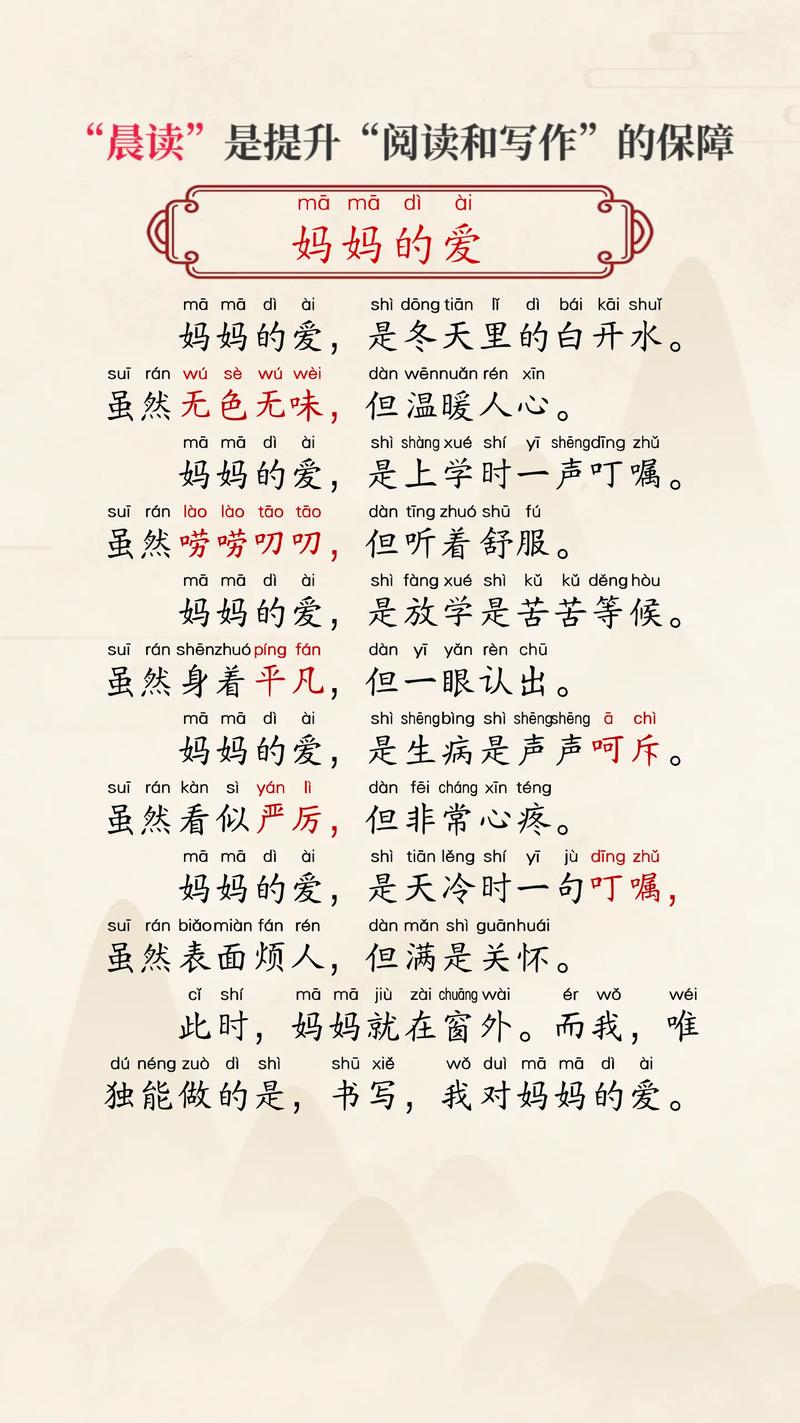 “晨读”是提升“阅读和写作”的保障
mā mā dì ài
妈妈的爱
mā mā dì ài shì dōng tiān lǐ dì bái kāi shuǐ
妈妈的爱，是冬天里的白开水。
suī rán wú sè wú wèi dàn wēn nuǎn rén xīn
虽然无色无味，但温暖人心。
mā mā dì ài shì shàng xué shí yī shēng dīng zhǔ
妈妈的爱，是上学时一声叮嘱。
suī rán lào lào tāo tāo dàn tīng zhuó shū fú
虽然唠唠叨叨，但听着舒服。
mā mā dì ài shì fàng xué shì kǔ kǔ děng hòu
妈妈的爱，是放学是苦苦等候。
suī rán shēn zhuó píng fán dàn yī yǎn rèn chū
虽然身着平凡，但一眼认出。
mā mā dì ài shì shēng bìng shì shēng shēng ā chì
妈妈的爱，是生病是声声呵斥。
suī rán kàn sì yán lì dàn fēi cháng xīn téng
虽然看似严厉，但非常心疼。
mā mā dì ài shì tiān lěng shí yī jù dīng zhǔ
妈妈的爱，是天冷时一句叮嘱，
suī rán biǎo miàn fán rén dàn mǎn shì guān huái
虽然表面烦人，但满是关怀。
cǐ shí mā mā jiù zài chuāng wài ér wǒ wéi
此时，妈妈就在窗外。而我，唯
dú néng zuò dì shì shū xiě wǒ duì mā mā dì ài
独能做的是，书写，我对妈妈的爱。